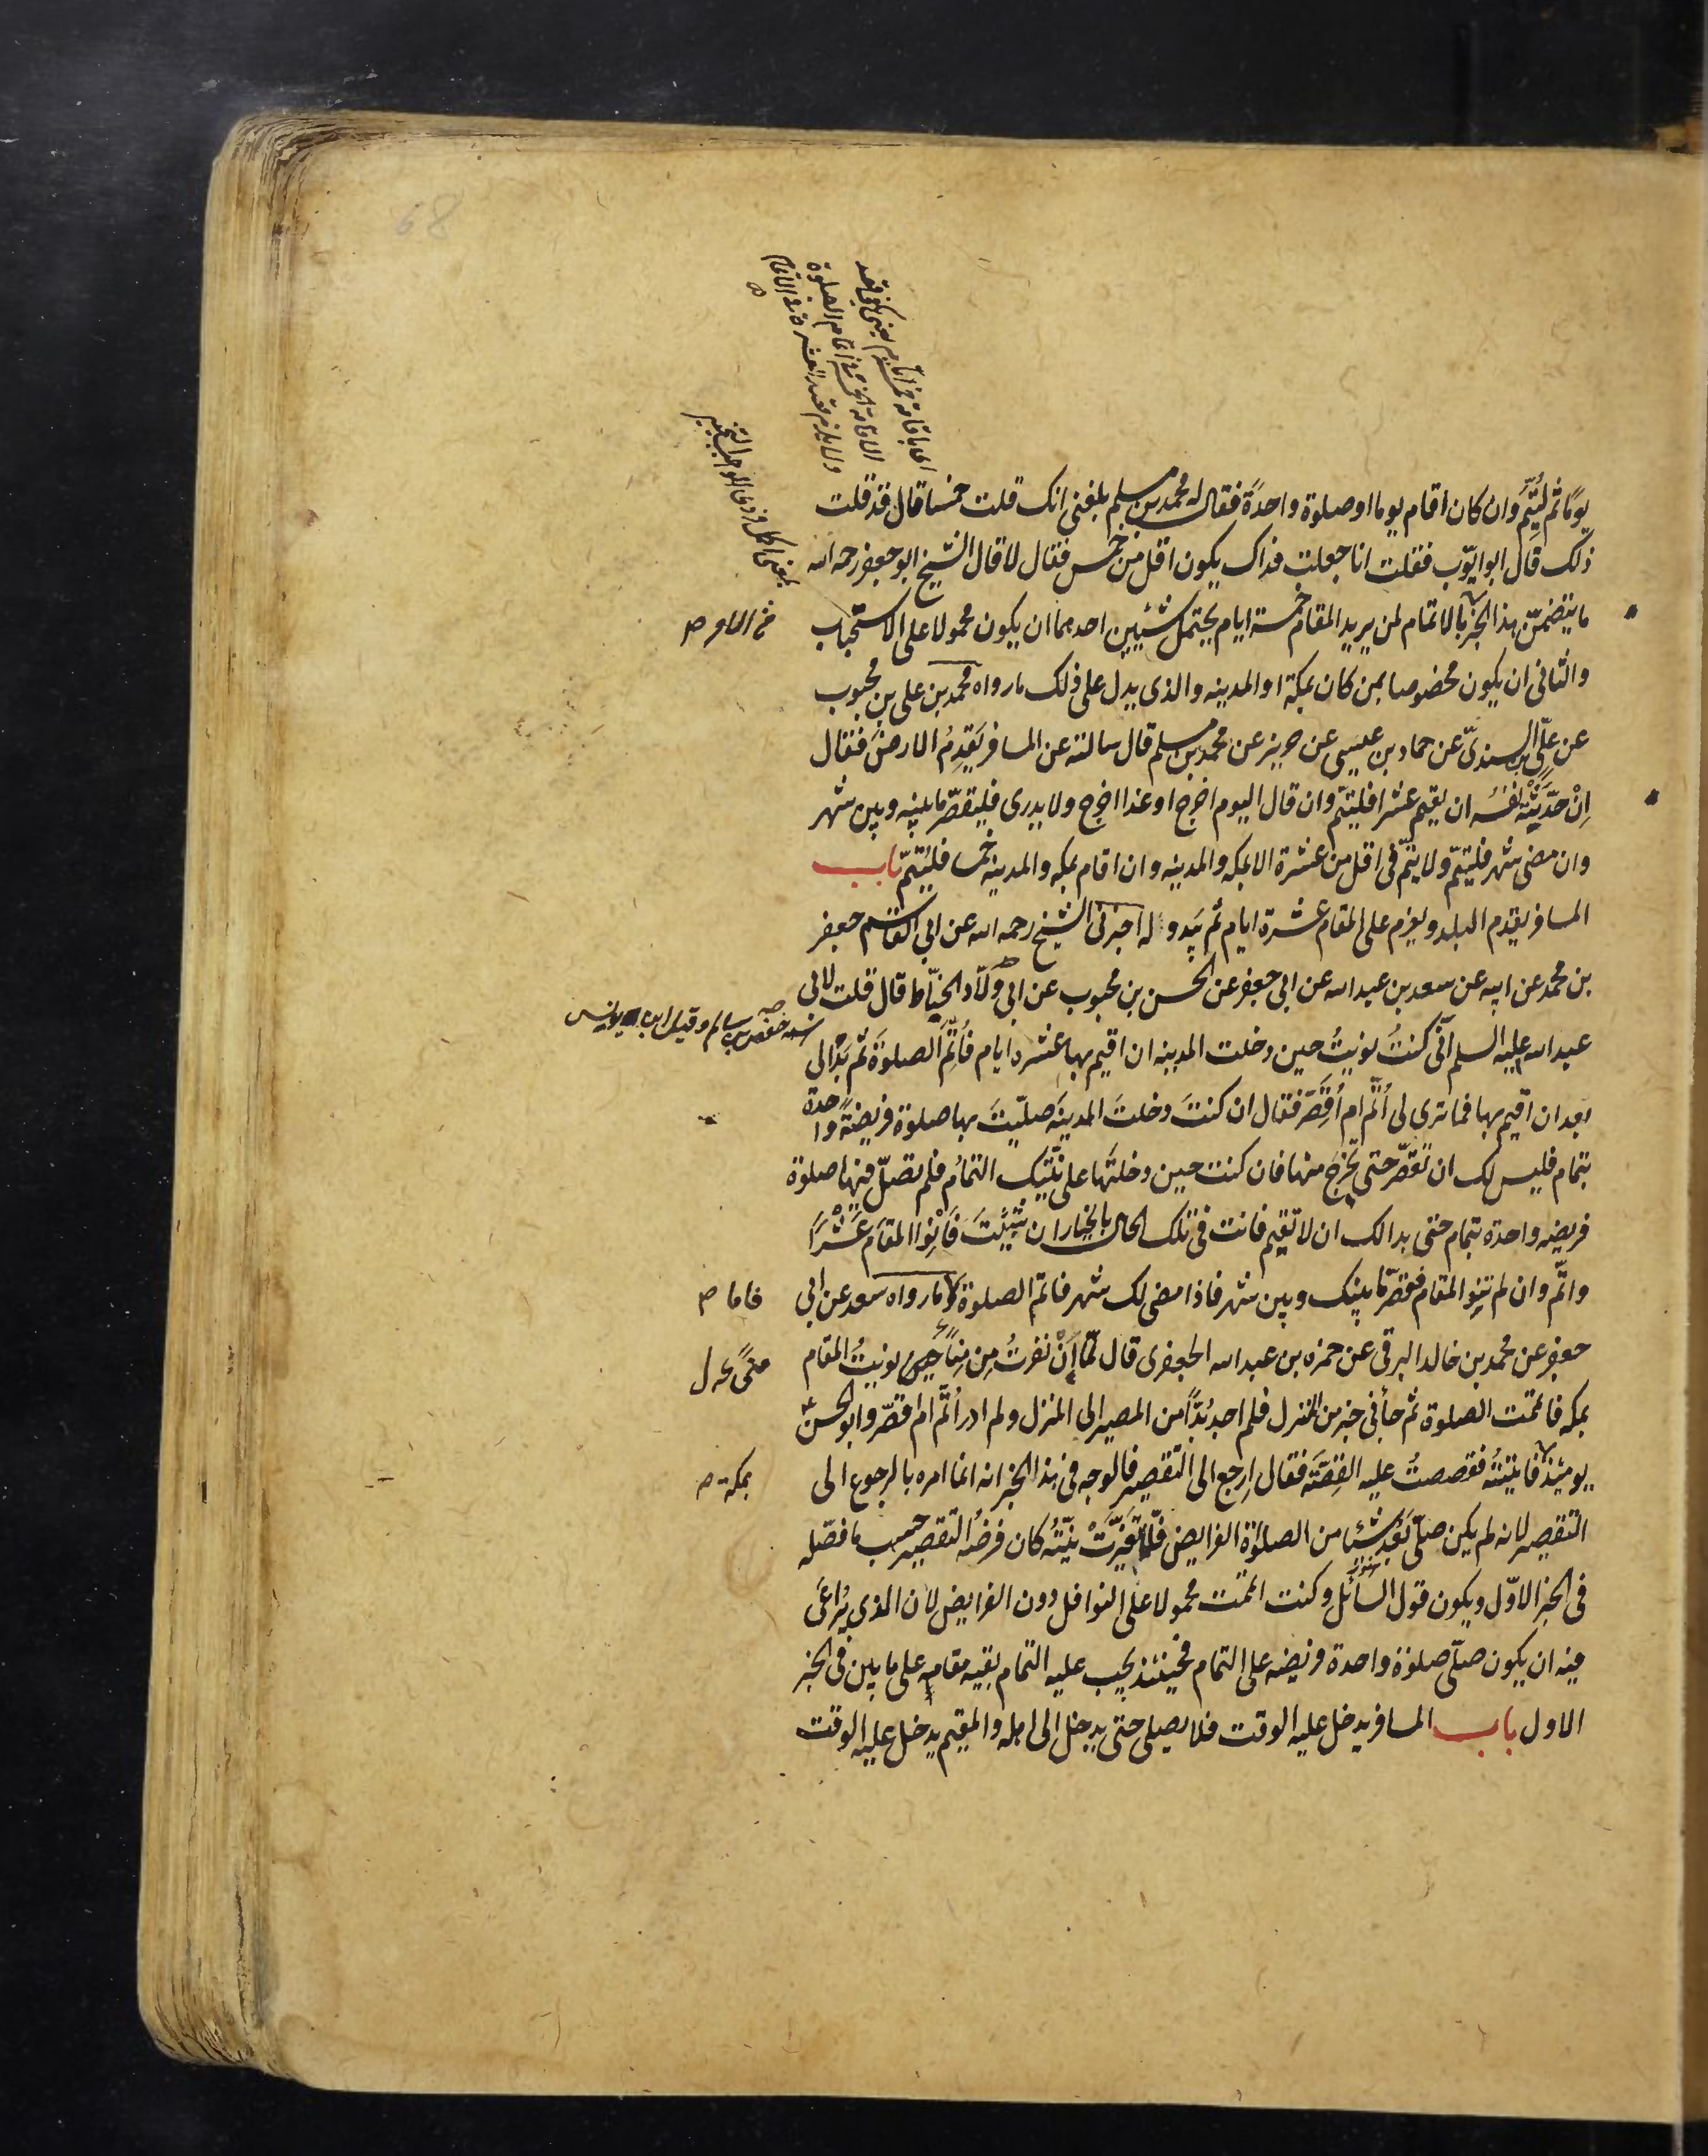 يومًا ثم ليُتِمَّ وان كان اقام يوما او صلوة واحدةً فقال له محمد بن مسلم بلغنى انك قلت خمسا قال قد قلت
ذلك قال ابو ايّوب فقلت انا جعلت فداك يكون اقل من خمس فقال لا قال الشيخ ابو جعفر رحمه الله
ما يتضمّن هذا الخبر بالاتمام لمن يريد المقام خمسة ايام يحتمل شيئين احدهما ان يكون محمولا على الاستحباب
والثانى ان يكون مخصوصا بمن كان بمكة او المدينه والذى يدل على ذلك ما رواه محمد بن على بن محبوب
عن علّى بن السندىّ عن حماد بن عيسى عن حريز عن محمد بن مسلم قال سالته عن المسافر يَقدِمُ الارضَ فقال
اِنْ حدّثَتْه نفسُه ان يقيم عشرا فليتمّ وان قال اليوم اخرج او غدا اخرج ولا يدرى فليقصّر ما بينه وبين شهر
وان مضى شهر فليتمّ ولا يتمّ فى اقل من عشرة الا بمكه والمدينه وان اقام بمكه والمدينه خمسا فليُتمّ باب
المسافر يقدم البلد ويعزم على المقام عشرة ايام ثم يبدو له اخبرنى الشيخ رحمه الله عن ابي القاسم جعفر
بن محمد عن ابيه عن سعد بن عبد الله عن ابى جعفر عن الحسن بن محبوب عن ابى ولّاد الحنّاط قال قلت لابى
عبد الله عليه السلم انّى كنتُ نويتُ حين دخلت المدينه ان اقيم بها عشره ايام فأُتِمَّ الصلوةَ ثم بَدا لى
بعد ان اقيم بها فما ترى لى أُتمّ ام أُقصِّر فقال ان كنتَ دخلتَ المدينَه صلّيتَ بها صلوة فريضةً واحدة
بتمام فليس لك ان تقصّر حتى تخرجَ منها فان كنت حين دخلتَها على نيّتِك التمامُ فلم تصلّ فيها صلوة
فريضه واحدة بتمام حتى بدا لك ان لا تقيم فانت فى تلك الحال بالخيار ان شئتَ فَانْوِ المقام عَشْرًا
واتمَّ وان لم تنوِ المقام فقصّر ما بينك وبين شهر فاذا مضى لك شهر فاتم الصلوة فامّا ما رواه سعد عن ابى
جعفر عن محمد بن خالد البرقى عن حمزه بن عبد الله الجعفرى قال لمّا أَنْ نفرتُ من مِنًا نويتُ المقام
بمكه فاتممت الصلوة ثم جأنى خبر من المنزل فلم اجد بُدًّا من المصير الى المنزل ولم ادر اُتمّ ام اقصّر وابو الحسن
يومئذ فاتيتُه فقصصتُ عليه القِصّةَ فقال اِرجع الى التقصير فالوجه فى هذا الخبر انه انما امره بالرجوع الى
التقصير لانه لم يكن صلّى بَعْدُ شيئا من الصلوة الفرايض فلمّا تغيَّرتْ نيّتُه كان فرضُه التقصير حسب ما فصّله
فى الخبر الاوّل ويكون قول السائل وكنت اتممت محمولا على النوافل دون الفرايض لان الذى يُراعَى
فيه ان يكون صلّى صلوة واحدة فريضه على التمام فحينئذ يجب عليه التمام بقيه مقامه على ما بين فى الخبر
الاول باب المسافر يدخل عليه الوقت فلا يصلى حتى يدخل الى اهله والمقيم يدخل عليه الوقت
فاما
بمكة
68